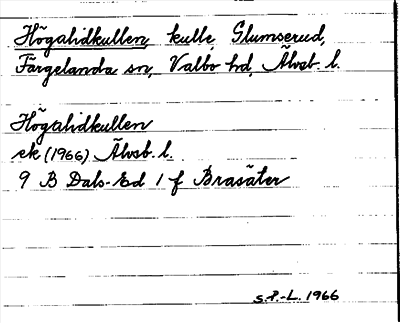 Högalidkullen, kulle, Glumserud,
Färgelanda sn, Valbo hd, Älvsb. l.
Högalidkullen
ek (1966) Älvsb. l.
9 B Dals-Ed 1 f Brasäter
S.P.-L. 1966